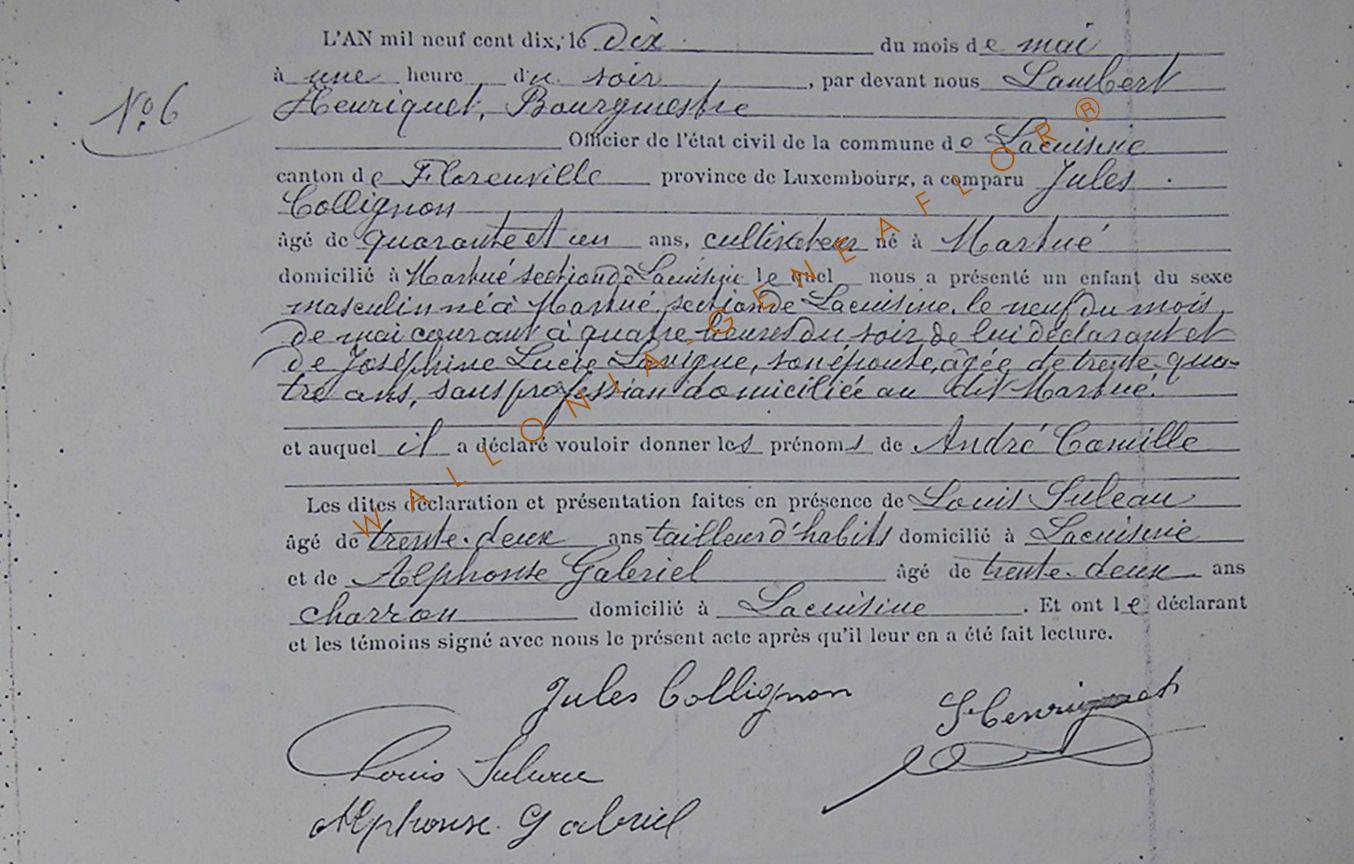 L'AN mil neuf cent dix, le dix du mois de mai
à une heure du soir, par devant nous Lambert
N° 6
Henriquet, Bourgmestre
Officier de l'état civil de la commune de Lacuisine
canton de Florenville province de Luxembourg, a comparu Jules
Collignon
âgé de quarante et un ans, cultivateur né à Martué
domicilié à Martué section de Lacuisine lequel nous a présenté un enfant du sexe
masculin né à Martué, section de Lacuisine, le neuf du mois
de mai courant à quatre heures du soir de lui déclarant et
de Joséphine Lucie Lavigne, son épouse, agée de trente-qua-
tre ans, sans profession domiciliée au dit Martué.
et auquel il a déclaré vouloir donner les prénoms de André Camille
Les dites déclaration et présentation faites en présence de Louis Suleau
âgé de trente-deux ans tailleur d'habits domicilié à Lacuisine
et de Alphonse Gabriel âgé de trente-deux ans
charron domicilié à Lacuisine. Et ont le déclarant
et les témoins signé avec nous le présent acte après qu'il leur en a été fait lecture.
Jules Collignon
Henriquet
Louis Suleau
Alphonse Gabriel
WALLONIA-GENEAFLOR®